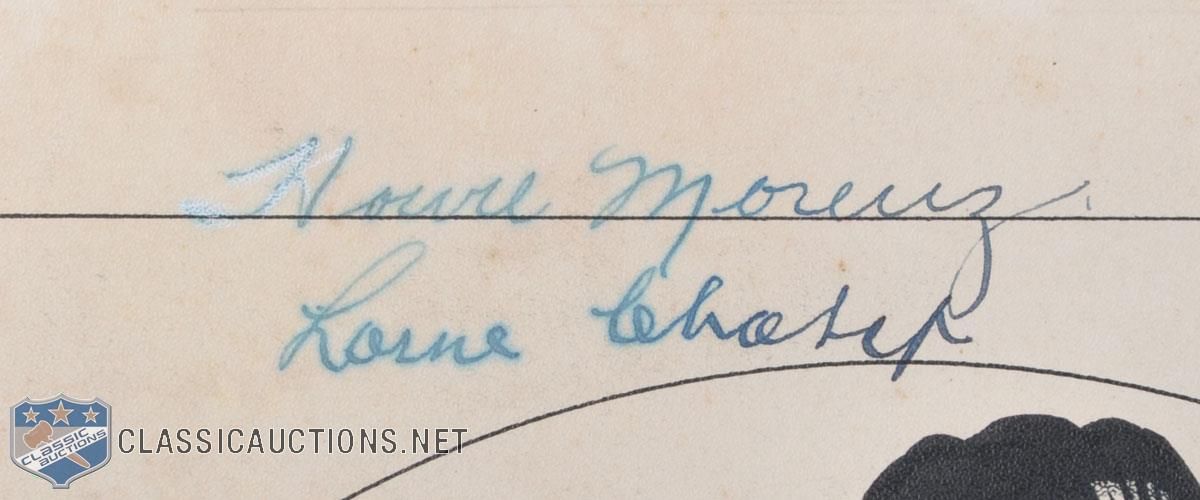 Howie Morenz
Lorne Chabot
CLASSIC
AUCTIONS
CLASSICAUCTIONS.NET